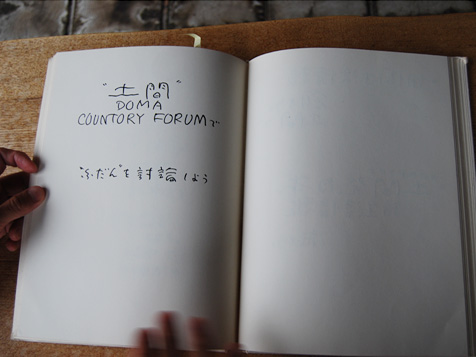 "土間"
DOMA
COUNTORY FORUMで
ふだんを討論しよう